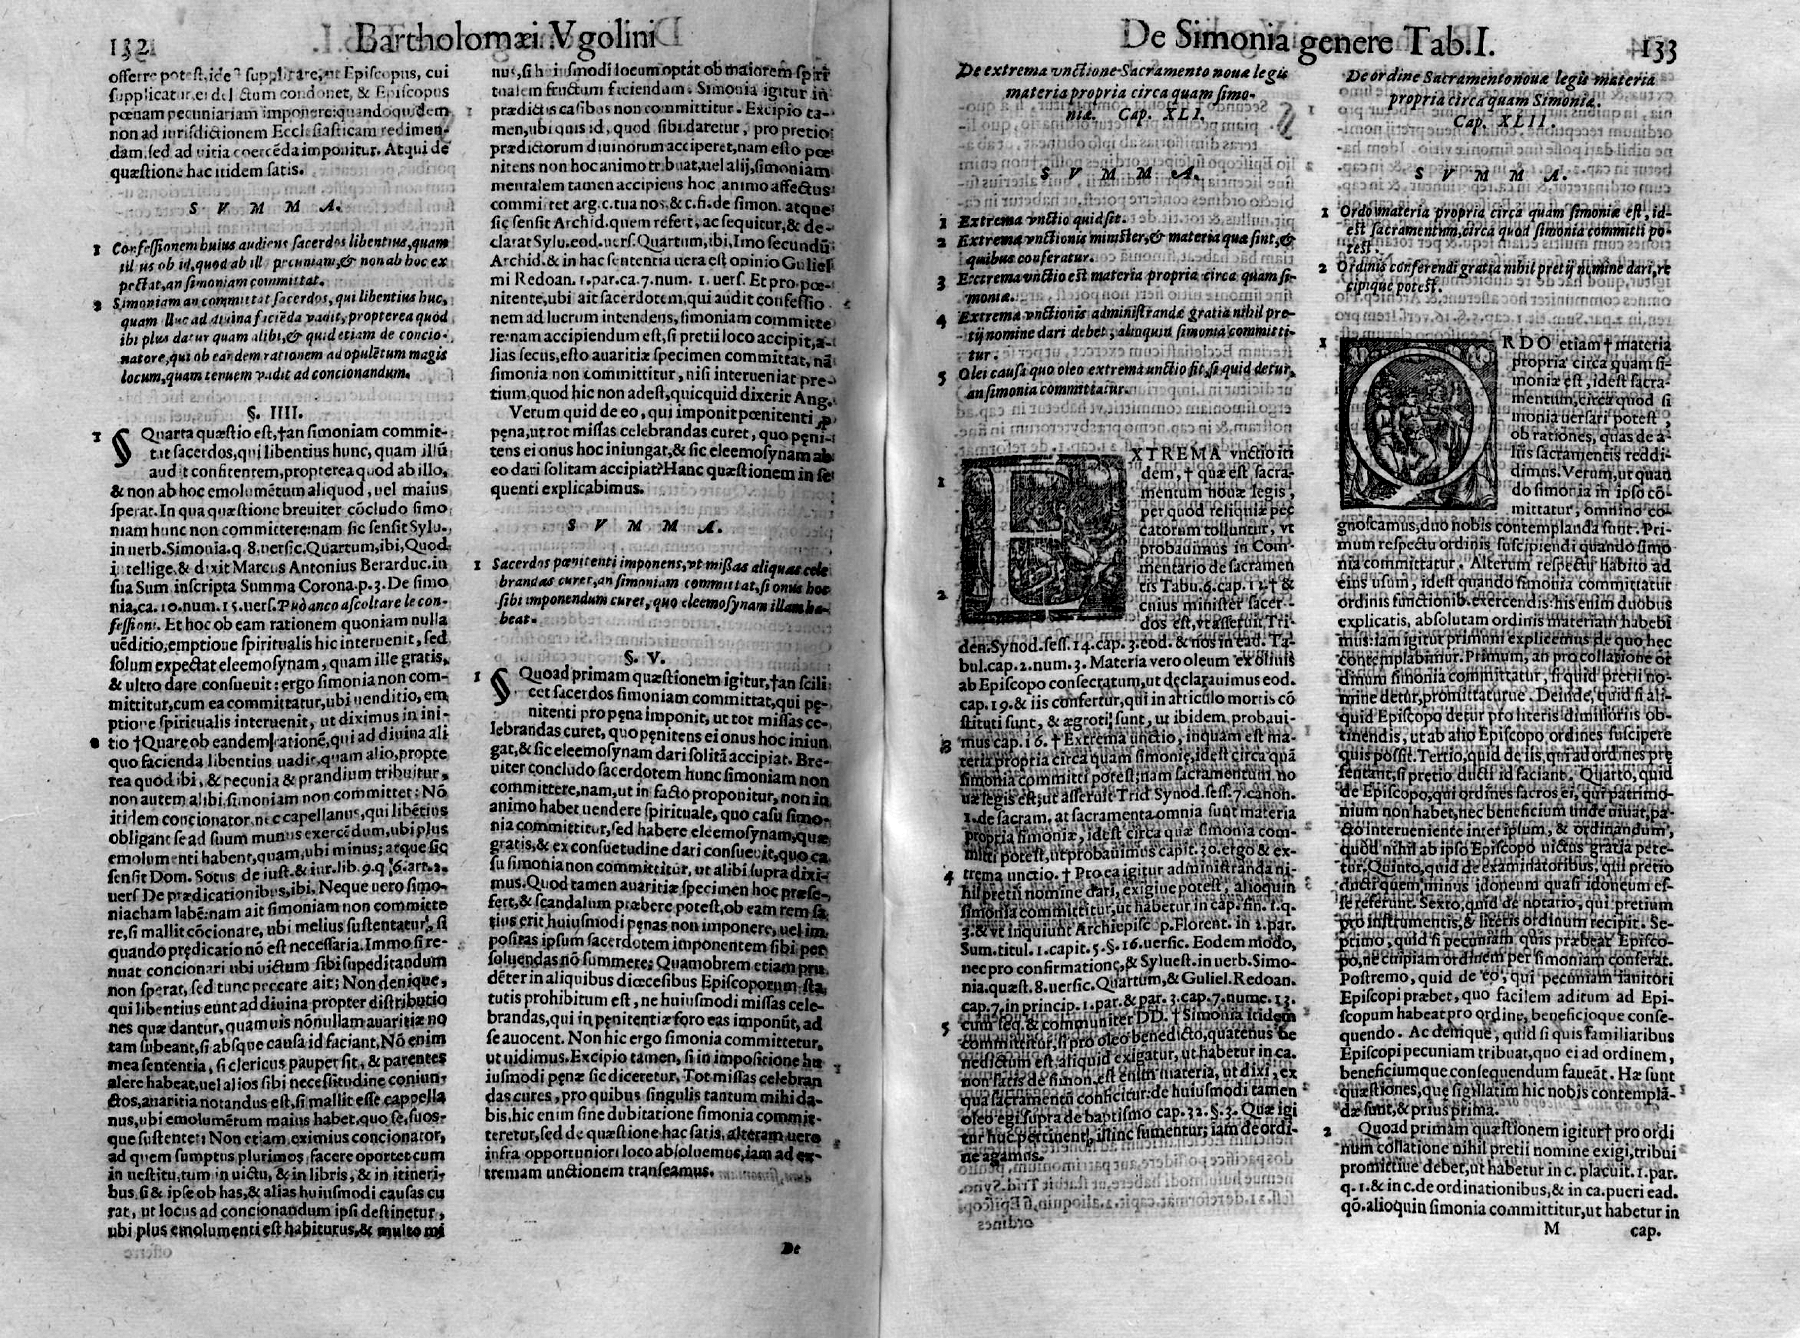 132 Bartholomæi Vgolini
offerre potest, ideo supplicare, ut Episcopus, cui
supplicatur, ei delictum condonet, & Episcopus
pœnam pecuniariam imponere: quandoquidem
non ad iurisdictionem Ecclesiasticam redimen-
dam, sed ad uitia coercēda imponitur. Atqui de
quæstione hac itidem satis.
S V M M A.
1 Confessionem huius audiens sacerdos libentius, quam
illius ob id, quod ab illo pecuniam, & non ab hoc ex
pectat, an simoniam committat.
2 Simoniam an committat sacerdos, qui libentius huc,
quam illuc ad diuina faciēda vadit, propterea quod
ibi plus datur quam alibi, & quid etiam de concio-
natore, qui ob eandem rationem ad opulētum magis
locum, quam tenuem vadit ad concionandum.
§. IIII.
1 § Quarta quæstio est, † an simoniam commit-
tat sacerdos, qui libentius hunc, quam illū
audit confitentem, propterea quod ab illo,
& non ab hoc emolumētum aliquod, uel maius
sperat. In qua quæstione breuiter cōcludo simo
niam hunc non committere: nam sic sensit Sylu.
in uerb. Simonia. q 8. uersic. Quartum, ibi, Quod
intellige, & dixit Marcus Antonius Berarduc. in
sua Sum inscripta Summa Corona. p. 3. De simo
nia, ca. 10. num. 15. uers. Può anco ascoltare le con-
fessioni. Et hoc ob eam rationem quoniam nulla
uēditio, emptioue spiritualis hic interuenit, sed
solum expectat eleemosynam, quam ille gratis,
& ultro dare consueuit: ergo simonia non com-
mittitur, cum ea committatur, ubi uenditio, em
ptioue spiritualis interuenit, ut diximus in ini-
tio † Quare ob eandem rationē, qui ad diuina ali
quo facienda libentius uadit, quam alio, propte
rea quod ibi, & pecunia & prandium tribuitur,
non autem alibi, simoniam non committet: Nō
itidem concionator, nec capellanus, qui libētius
obligant se ad suum munus exercēdum, ubi plus
emolumenti habent, quam, ubi minus; atque sic
sensit Dom. Sotus de iust. & iur. lib. 9. q 6. art. 2.
uers De prædicationibus, ibi. Neque uero simo-
niacham labē: nam ait simoniam non committe
re, si mallit cōcionare, ubi melius sustentatur, si
quando prędicatio nō est necessaria. Immo si re-
nuat concionari ubi uictum sibi supeditandum
non sperat, sed tunc peccare ait; Non denique,
qui libentius eunt ad diuina propter distributio
nes quæ dantur, quamuis nōnullam auaritiæ no
tam subeant, si absque causa id faciant. Nō enim
mea sententia, si clericus pauper sit, & parentes
alere habeat, uel alios sibi necessitudine coniun-
ctos, auaritia notandus est, si mallit esse cappella
nus, ubi emolumētum maius habet, quo se, suos-
que sustentet: Non etiam eximius concionator,
ad quem sumptus plurimos facere oportet cum
in uestitu, tum in uictu, & in libris, & in itineri-
bus, si & ipse ob has, & alias huiusmodi causas cu
rat, ut locus ad concionandum ipsi destinetur,
ubi plus emolumenti est habiturus, & multo mi
nus, si huiusmodi locum optāt ob maiorem spiri
tualem fructum faciendum. Simonia igitur in
prædictis casibus non committitur. Excipio ta-
men, ubi quis id, quod sibi daretur, pro pretio
prædictorum diuinorum acciperet, nam esto pœ
nitens non hoc animo tribuat, uel alij, simoniam
mentalem tamen accipiens hoc animo affectus
committet arg. c. tua nos. & c. fi. de simon. atque
sic sensit Archid. quem refert, ac sequitur, & de-
clarat Sylu. eod. uers. Quartum, ibi, Imo secundū
Archid. & in hac sententia uera est opinio Guliel
mi Redoan. 1. par. ca. 7. num. 1. uers. Et pro pœ-
nitente, ubi ait sacerdotem, qui audit confessio
nem ad lucrum intendens, simoniam committe
re: nam accipiendum est, si pretii loco accipit, a-
lias secus, esto auaritiæ specimen committat, nā
simonia non committitur, nisi interueniat pre-
tium, quod hic non adest, quicquid dixerit Ang.
Verum quid de eo, qui imponit pœnitenti p
pęna, ut tot missas celebrandas curet, quo pęni-
tens ei onus hoc iniungat, & sic eleemosynam ab
eo dari solitam accipiat? Hanc quæstionem in se
quenti explicabimus.
S V M M A.
1 Sacerdos pœnitenti imponens, vt missas aliquas cele
brandas curet, an simoniam committat, si onus hoc
sibi imponendum curet, quo eleemosynam illam ha-
beat.
§. V.
1 § Quoad primam quæstionem igitur, † an scili
cet sacerdos simoniam committat, qui pę-
nitenti pro pęna imponit, ut tot missas ce-
lebrandas curet, quo pęnitens ei onus hoc iniun
gat, & sic eleemosynam dari solitā accipiat. Bre-
uiter concludo sacerdotem hunc simoniam non
committere, nam, ut in facto proponitur, non in
animo habet uendere spirituale, quo casu simo-
nia committitur, sed habere eleemosynam, quæ
gratis, & ex consuetudine dari consueuit, quo ca
su simonia non committitur, ut alibi supra dixi-
mus. Quod tamen auaritiæ specimen hoc præse-
fert, & scandalum præbere potest, ob eam rem sa
tius erit huiusmodi pęnas non imponere, uel im
positas ipsum sacerdotem imponentem sibi per
soluendas nō summere; Quamobrem etiam pru
dēter in aliquibus diœcesibus Episcoporum sta
tutis prohibitum est, ne huiusmodi missas cele-
brandas, qui in pęnitentiæ foro eas imponūt, ad
se auocent. Non hic ergo simonia committetur,
ut uidimus. Excipio tamen, si in impositione hu
iusmodi pęnæ sic diceretur, Tot missas celebran
das cures, pro quibus singulis tantum mihi da-
bis, hic enim sine dubitatione simonia commit-
teretur, sed de quæstione hac satis, alteram uero
infra opportuniori loco absoluemus, iam ad ex-
tremam unctionem transeamus.
De
De Simonia genere Tab. I. 133
De extrema vnctione Sacramento nouæ legis
materia propria circa quam simo-
niæ. Cap. XLI.
S V M M A.
1 Extrema vnctio quid sit.
2 Extremæ vnctionis minister, & materia quæ sint, &
quibus conferatur.
3 Exctrema vnctio est materia propria circa quam si-
moniæ.
4 Extremæ vnctionis administrandæ gratia nihil pre-
tij nomine dari debet, alioquin simonia committi-
tur.
5 Olei causa quo oleo extrema unctio fit, si quid detur,
an simonia committatur.
1 EXTREMA vnctio iti
dem, † quæ est sacra-
mentum nouæ legis,
per quod reliquiæ pec
catorum tolluntur, vt
probauimus in Com-
mentario de sacramen
2 tis Tabu. 6. cap. 1. † &
cuius minister sacer-
dos est, vt asseruit Tri-
den. Synod. sess. 14. cap. 3. eod. & nos in ead. Ta-
bul. cap. 2. num. 3. Materia vero oleum ex oliuis
ab Episcopo consecratum, ut declarauimus eod.
cap. 19. & iis confertur, qui in articulo mortis cō
stituti sunt, & ægroti sunt, ut ibidem probaui-
3 mus cap. 16. † Extrema unctio, inquam est ma-
teria propria circa quam simonię, idest circa quā
simonia committi potest; nam sacramentum no
uæ legis est; ut asseruit Trid Synod. sess. 7. canon.
1. de sacram. at sacramenta omnia sunt materia
propria simoniæ, idest circa quæ simonia com-
mitti potest, ut probauimus capit. 30. ergo & ex-
4 trema unctio. † Pro ea igitur administranda ni-
hil pretii nomine dari, exigiue potest, alioquin
simonia committitur, ut habetur in cap. fin. 1. q.
3. & vt inquiunt Archiepiscop. Florent. in 2. par.
Sum. titul. 1. capit. 5. §. 16. uersic. Eodem modo,
nec pro confirmatione, & Syluest. in uerb. Simo-
nia. quæst. 8. uersic. Quartum, & Guliel. Redoan.
cap. 7. in princip. 1. par. & par. 3. cap. 7. nume. 13.
5 cum seq. & communiter DD. † Simonia itidem
committitur, si pro oleo benedicto, quatenus be
nedictum est, aliquid exigatur, ut habetur in ca.
non satis de simon. est enim materia, ut dixi, ex
qua sacramentū conficitur: de huiusmodi tamen
oleo egi supra de baptismo cap. 32. §. 3. Quæ igi
tur huc pertinent, istinc sumentur; iam de ordi-
ne agamus.
De ordine Sacramento nouæ legis materia
propria circa quam Simoniæ.
Cap. XLII.
S V M M A.
1 Ordo materia propria circa quam simoniæ est, id-
est sacramentum, circa quod simonia committi po-
test.
2 Ordinis conferendi gratia nihil pretij nomine dari, re
cipique potest.
1 ORDO etiam † materia
propria circa quam si-
moniæ est, idest sacra-
mentum, circa quod si
monia uersari potest,
ob rationes, quas de a-
liis sacramentis reddi-
dimus. Verum, ut quan
do simonia in ipso cō-
mittatur, omnino co-
gnoscamus, duo nobis contemplanda sunt. Pri-
mum respectu ordinis suscipiendi quando simo
nia committatur. Alterum respectu habito ad
eius usum, idest quando simonia committatur
ordinis functionib. exercendis: his enim duobus
explicatis, absolutam ordinis materiam habebi
mus: iam igitur primum explicemus de quo hec
contemplabimur. Primum, an pro collatione or
dinum simonia committatur, si quid pretii no-
mine detur, promittaturue. Deinde, quid si ali-
quid Episcopo detur pro literis dimissoriis ob-
tinendis, ut ab alio Episcopo ordines suscipere
quis possit. Tertio, quid de iis, qui ad ordines prę
sentant, si pretio ducti id faciant. Quarto, quid
de Episcopo, qui ordines sacros ei, qui patrimo-
nium non habet, nec beneficium unde uiuat, pa-
cto interueniente inter ipsum, & ordinandum,
quod nihil ab ipso Episcopo uictus gratia pete-
tur. Quinto, quid de examinatoribus, qui pretio
ducti quem, minus idoneum quasi idoneum es-
se referunt. Sexto, quid de notario, qui pretium
pro instrumentis, & literis ordinum recipit. Se-
ptimo, quid si pecuniam quis præbeat Episco-
po, ne cuipiam ordinem per simoniam conferat.
Postremo, quid de eo, qui pecuniam ianitori
Episcopi præbet, quo facilem aditum ad Epi-
scopum habeat pro ordine, beneficioque conse-
quendo. Ac denique, quid si quis familiaribus
Episcopi pecuniam tribuat, quo ei ad ordinem,
beneficiumque consequendum faueāt. Hæ sunt
quæstiones, quę sigillatim hic nobis contemplā-
dæ sunt, & prius prima.
2 Quoad primam quæstionem igitur † pro ordi
num collatione nihil pretii nomine exigi, tribui
promittiue debet, ut habetur in c. placuit. 1. par.
q. 1. & in c. de ordinationibus, & in ca. pueri ead.
qō. alioquin simonia committitur, ut habetur in
M cap.